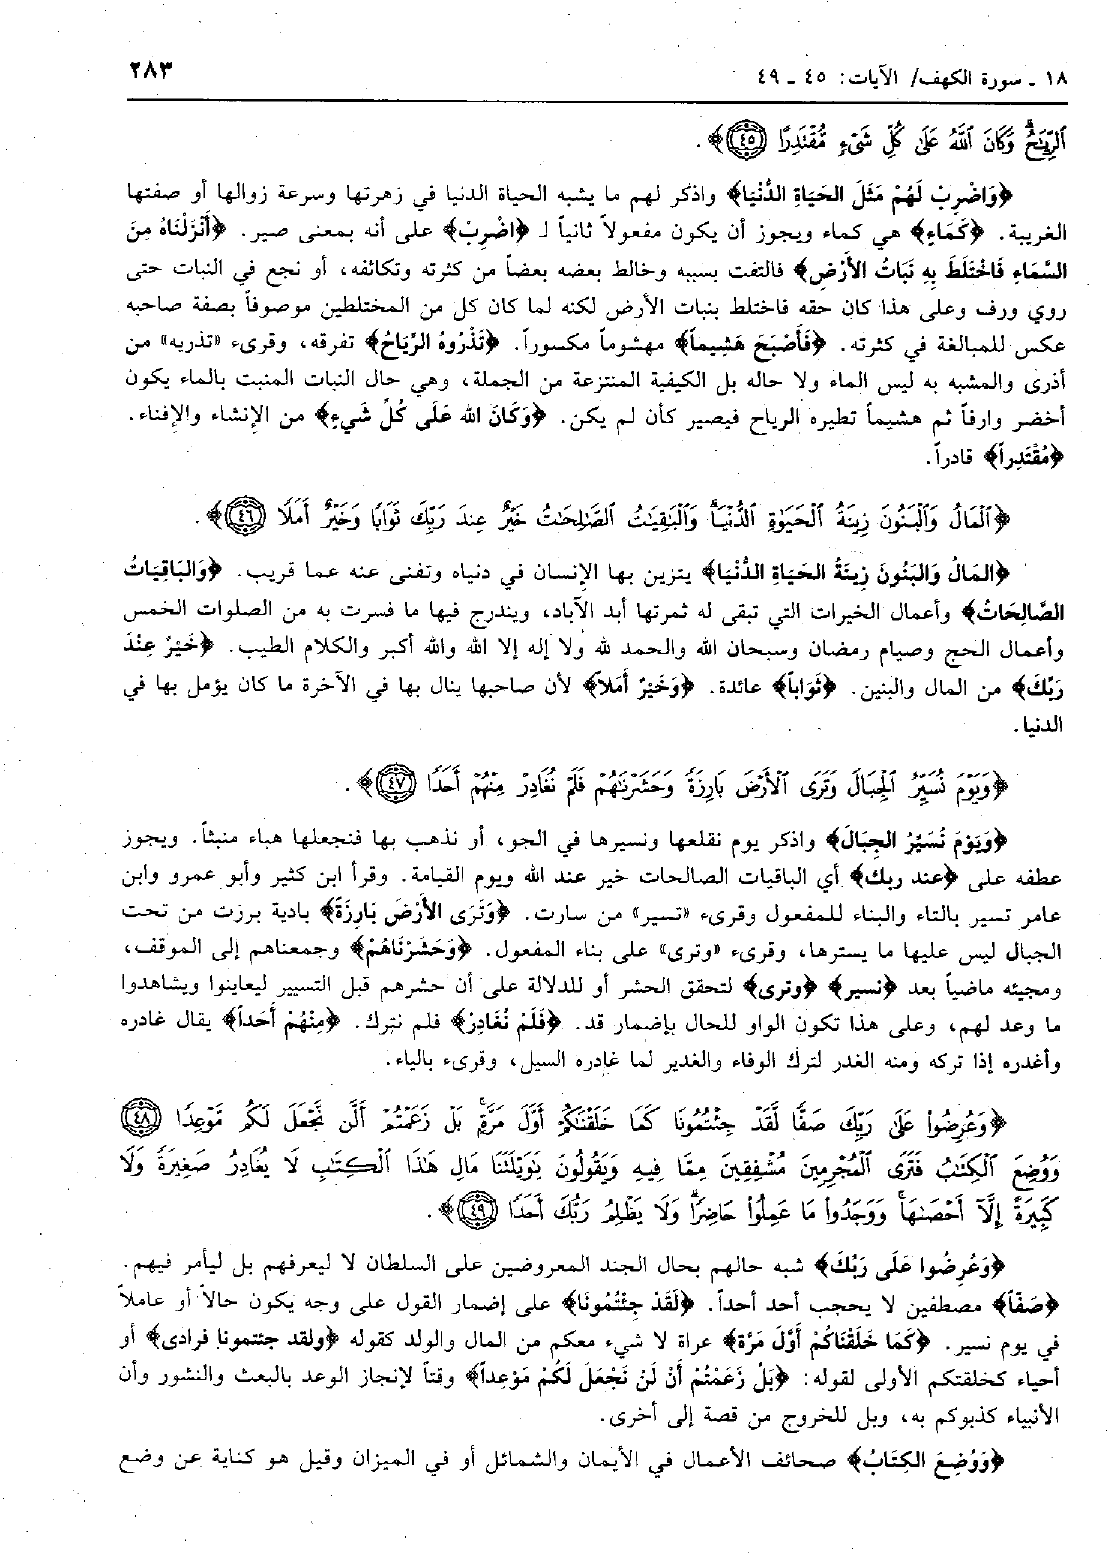 ١٨ ـ سورة الكهف/ الآيات: ٤٥ ـ ٤٩
٢٨٣
ٱلرِّيَٰحُ ۗ وَكَانَ ٱللَّهُ عَلَىٰ كُلِّ شَىْءٍ مُّقْتَدِرًا ﴿٤٥﴾ .
﴿وَاضْرِبْ لَهُمْ مَثَلَ الحَيَاةِ الدُّنْيَا﴾ واذكر لهم ما يشبه الحياة الدنيا في زهرتها وسرعة زوالها أو صفتها
الغريبة. ﴿كَمَاءٍ﴾ هي كماء ويجوز أن يكون مفعولاً ثانياً لـ ﴿اضْرِبْ﴾ على أنه بمعنى صير. ﴿أَنْزَلْنَاهُ مِنَ
السَّمَاءِ فَاخْتَلَطَ بِهِ نَبَاتُ الأَرْضِ﴾ فالتفت بسببه وخالط بعضه بعضاً من كثرته وتكاثفه، أو نجع في النبات حتى
روي ورف وعلى هذا كان حقه فاختلط بنبات الأرض لكنه لما كان كل من المختلطين موصوفاً بصفة صاحبه
عكس للمبالغة في كثرته. ﴿فَأَصْبَحَ هَشِيماً﴾ مهشوماً مكسوراً. ﴿تَذْرُوهُ الرِّيَاحُ﴾ تفرقه، وقرىء «تذريه» من
أذرى والمشبه به ليس الماء ولا حاله بل الكيفية المنتزعة من الجملة، وهي حال النبات المنبت بالماء يكون
أخضر وارفاً ثم هشيماً تطيره الرياح فيصير كأن لم يكن. ﴿وَكَانَ الله عَلَى كُلِّ شَيءٍ﴾ من الإنشاء والإفناء.
﴿مُقْتَدِراً﴾ قادراً.
﴿ٱلْمَالُ وَٱلْبَنُونَ زِينَةُ ٱلْحَيَوٰةِ ٱلدُّنْيَا ۖ وَٱلْبَٰقِيَٰتُ ٱلصَّٰلِحَٰتُ خَيْرٌ عِندَ رَبِّكَ ثَوَابًا وَخَيْرٌ أَمَلًا ﴿٤٦﴾﴾ .
﴿المَالُ وَالبَنُونَ زِينَةُ الحَيَاةِ الدُّنْيَا﴾ يتزين بها الإنسان في دنياه وتفنى عنه عما قريب. ﴿وَالبَاقِيَاتُ
الصَّالِحَاتُ﴾ وأعمال الخيرات التي تبقى له ثمرتها أبد الآباد، ويندرج فيها ما فسرت به من الصلوات الخمس
وأعمال الحج وصيام رمضان وسبحان الله والحمد لله ولا إله إلا الله والله أكبر والكلام الطيب. ﴿خَيْرٌ عِنْدَ
رَبِّكَ﴾ من المال والبنين. ﴿ثَوَاباً﴾ عائدة. ﴿وَخَيْرٌ أَمَلاً﴾ لأن صاحبها ينال بها في الآخرة ما كان يؤمل بها في
الدنيا.
﴿وَيَوْمَ نُسَيِّرُ ٱلْجِبَالَ وَتَرَى ٱلْأَرْضَ بَارِزَةً وَحَشَرْنَٰهُمْ فَلَمْ نُغَادِرْ مِنْهُمْ أَحَدًا ﴿٤٧﴾﴾ .
﴿وَيَوْمَ نُسَيِّرُ الجِبَالَ﴾ واذكر يوم نقلعها ونسيرها في الجو، أو نذهب بها فنجعلها هباء منبثاً. ويجوز
عطفه على ﴿عند ربك﴾ أي الباقيات الصالحات خير عند الله ويوم القيامة. وقرأ ابن كثير وأبو عمرو وابن
عامر تسير بالتاء والبناء للمفعول وقرىء «تسير» من سارت. ﴿وَتَرَى الأَرْضَ بَارِزَةً﴾ بادية برزت من تحت
الجبال ليس عليها ما يسترها، وقرىء «وترى» على بناء المفعول. ﴿وَحَشَرْنَاهُمْ﴾ وجمعناهم إلى الموقف،
ومجيئه ماضياً بعد ﴿نسير﴾ ﴿وترى﴾ لتحقق الحشر أو للدلالة على أن حشرهم قبل التسيير ليعاينوا ويشاهدوا
ما وعد لهم، وعلى هذا تكون الواو للحال بإضمار قد. ﴿فَلَمْ نُغَادِرْ﴾ فلم نترك. ﴿مِنْهُمْ أَحَداً﴾ يقال غادره
وأغدره إذا تركه ومنه الغدر لترك الوفاء والغدير لما غادره السيل، وقرىء بالياء.
﴿وَعُرِضُوا۟ عَلَىٰ رَبِّكَ صَفًّا لَّقَدْ جِئْتُمُونَا كَمَا خَلَقْنَٰكُمْ أَوَّلَ مَرَّةٍۭ ۚ بَلْ زَعَمْتُمْ أَلَّن نَّجْعَلَ لَكُم مَّوْعِدًا ﴿٤٨﴾
وَوُضِعَ ٱلْكِتَٰبُ فَتَرَى ٱلْمُجْرِمِينَ مُشْفِقِينَ مِمَّا فِيهِ وَيَقُولُونَ يَٰوَيْلَتَنَا مَالِ هَٰذَا ٱلْكِتَٰبِ لَا يُغَادِرُ صَغِيرَةً وَلَا
كَبِيرَةً إِلَّآ أَحْصَىٰهَا ۚ وَوَجَدُوا۟ مَا عَمِلُوا۟ حَاضِرًا ۗ وَلَا يَظْلِمُ رَبُّكَ أَحَدًا ﴿٤٩﴾﴾ .
﴿وَعُرِضُوا عَلَى رَبِّكَ﴾ شبه حالهم بحال الجند المعروضين على السلطان لا ليعرفهم بل ليأمر فيهم.
﴿صَفّاً﴾ مصطفين لا يحجب أحد أحداً. ﴿لَقَدْ جِئْتُمُونَا﴾ على إضمار القول على وجه يكون حالاً أو عاملاً
في يوم نسير. ﴿كَمَا خَلَقْنَاكُمْ أَوَّلَ مَرَّةٍ﴾ عراة لا شيء معكم من المال والولد كقوله ﴿ولقد جئتمونا فرادى﴾ أو
أحياء كخلقتكم الأولى لقوله: ﴿بَلْ زَعَمْتُمْ أَنْ لَنْ نَجْعَلَ لَكُمْ مَوْعِداً﴾ وقتاً لإنجاز الوعد بالبعث والنشور وأن
الأنبياء كذبوكم به، وبل للخروج من قصة إلى أخرى.
﴿وَوُضِعَ الكِتَابُ﴾ صحائف الأعمال في الأيمان والشمائل أو في الميزان وقيل هو كناية عن وضع